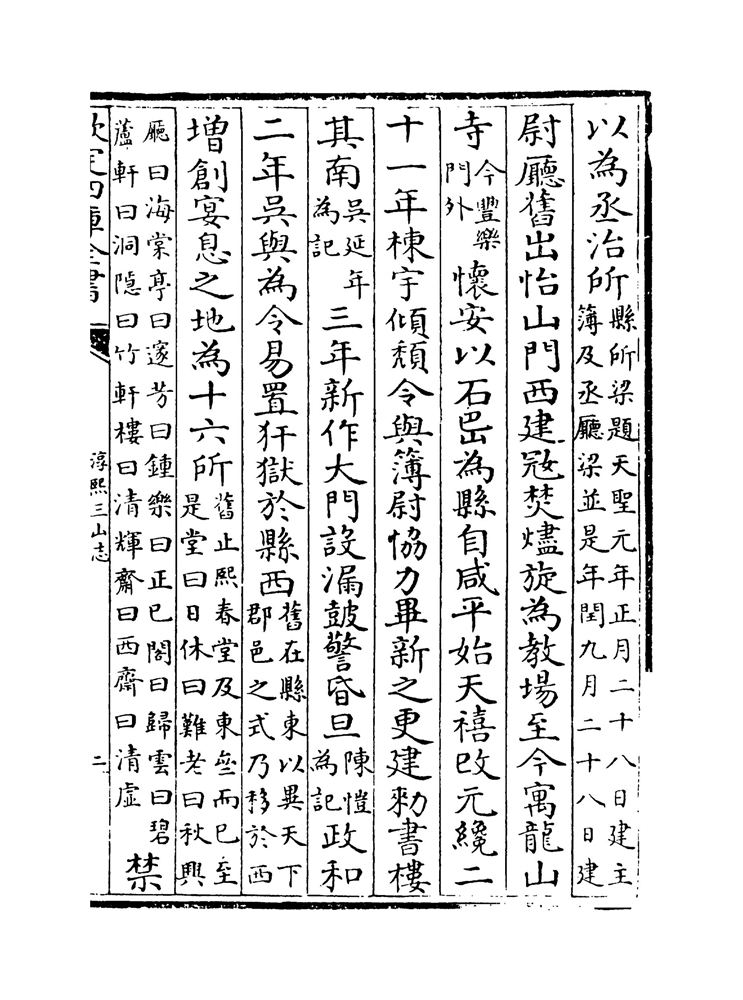 以為丞治所縣所梁題天聖元年正月二十八日建主簿及丞廳梁並是年閏九月二十八日建
尉廳舊出怡山門西建冦焚燼旋為教場至今寓龍山
寺今豐樂門外懷安以石岊為縣自咸平始天禧改元纔二
十一年棟宇傾頹令與簿尉協力畢新之更建勑書樓
其南吳延年為記三年新作大門設漏鼓警昏旦陳愷為記政和
二年吳與為令易置犴獄於縣西舊在縣東以異天下郡邑之式乃移於西
增創宴息之地為十六所舊止熙春堂及東亝而已至是堂曰日休曰難老曰秋興
廳曰海棠亭曰邃芳曰鍾樂曰正已閣曰歸雲曰碧蘆軒曰洞隱曰竹軒樓曰清輝齋曰西齋曰清虛禁
欽定四庫全書
淳熙三山志
二